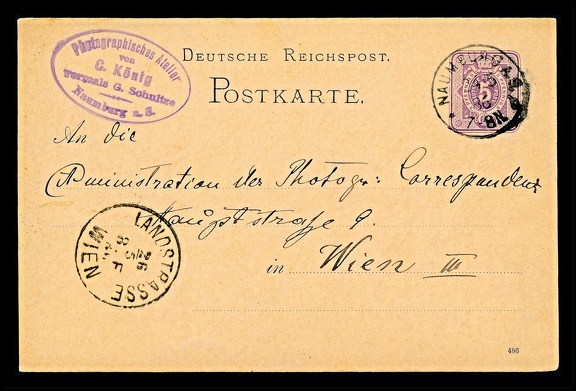 Photographisches Atelier
von
C. König
vormals G. Schultze
Naumburg a. S.
DEUTSCHE REICHSPOST.
POSTKARTE.
5
NAUMBURG
7-8N.
An die
Administration der Photogr: Correspondenz
Hauptstraße 9.
in Wien III
LANDSTRASSE
WIEN
26
5
8. F
486